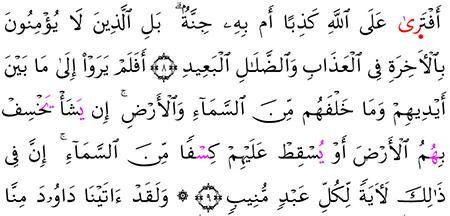 أَفْتَرِىٰ عَلَى ٱللَّهِ كَذِبًا أَم بِهِۦ جِنَّةٌۗ بَلِ ٱلَّذِينَ لَا يُؤْمِنُونَ
بِٱلْأَخِرَةِ فِى ٱلْعَذَابِ وَٱلضَّلَٰلِ ٱلْبَعِيدِ ٨ أَفَلَمْ يَرَوْاْ إِلَىٰ مَا بَيْنَ
أَيْدِيهِمْ وَمَا خَلْفَهُم مِّنَ ٱلسَّمَآءِ وَٱلْأَرْضِۚ إِن يَشَأْ يَخْسِفْ
بِهُمُ ٱلْأَرْضَ أَوْ يُسْقِطْ عَلَيْهِمْ كِسْفًا مِّنَ ٱلسَّمَآءِۚ إِنَّ فِى
ذَٰلِكَ لَأَيَةً لِّكُلِّ عَبْدٍ مُّنِيبٍ ٩ ۞ وَلَقَدْ ءَاتَيْنَا دَاوُۥدَ مِنَّا